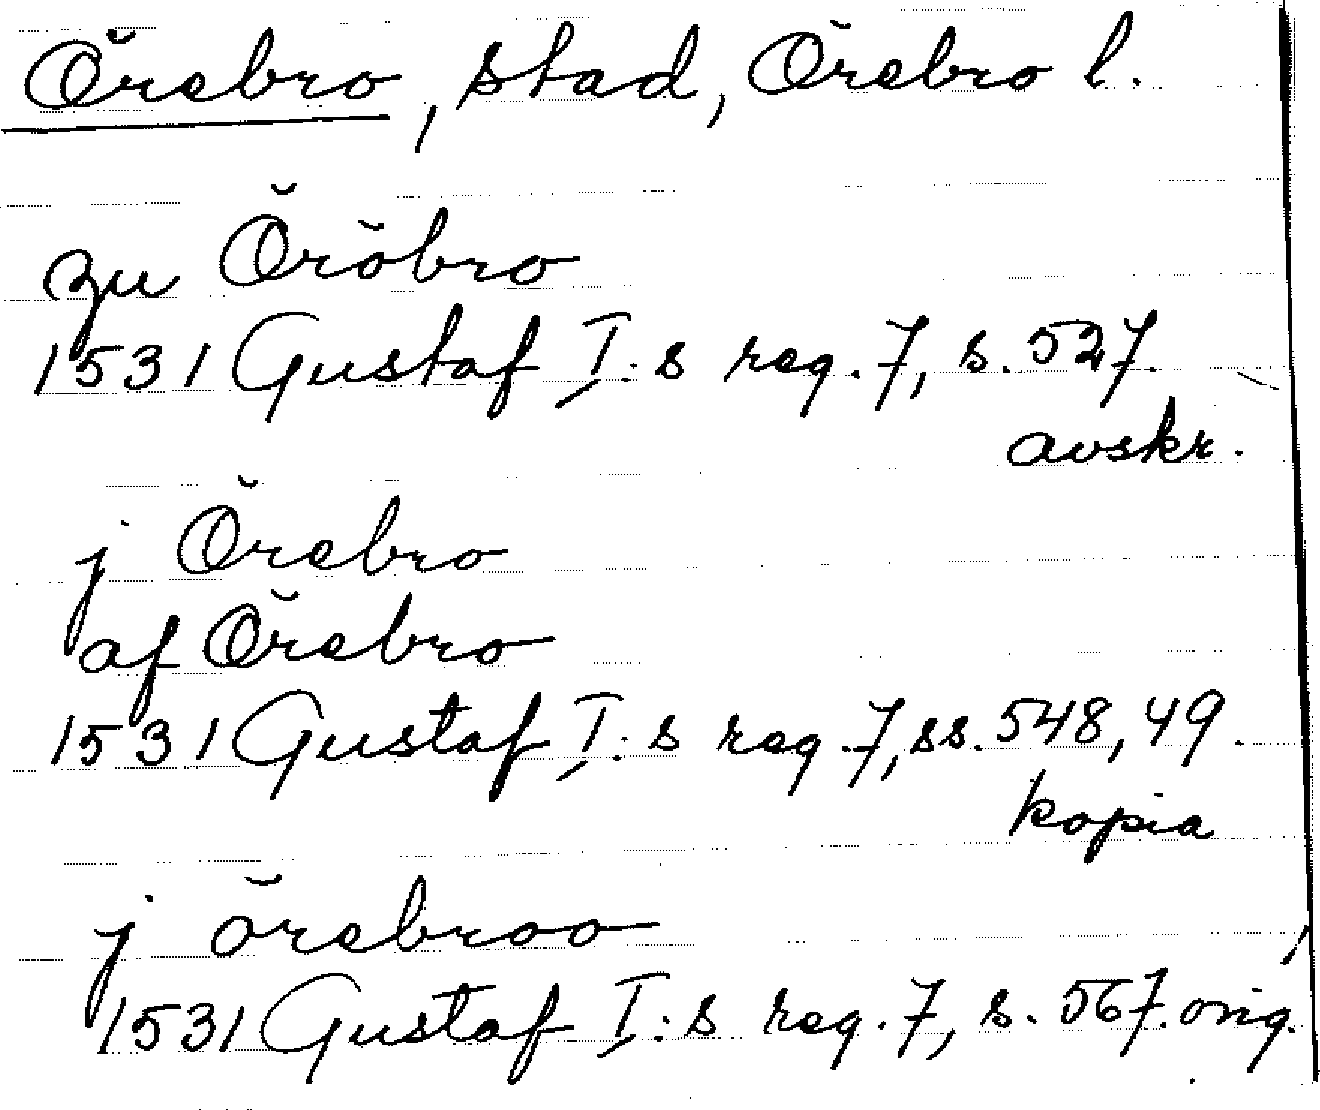 Örebro, stad, Örebro l.
zu Öröbro
1531 Gustaf I:s reg. 7, s. 527.
avskr.
j Örebro
af Örebro
1531 Gustaf I:s reg. 7, ss. 548, 49.
kopia
j örebroo
1531 Gustaf I:s reg. 7, s. 567. orig.